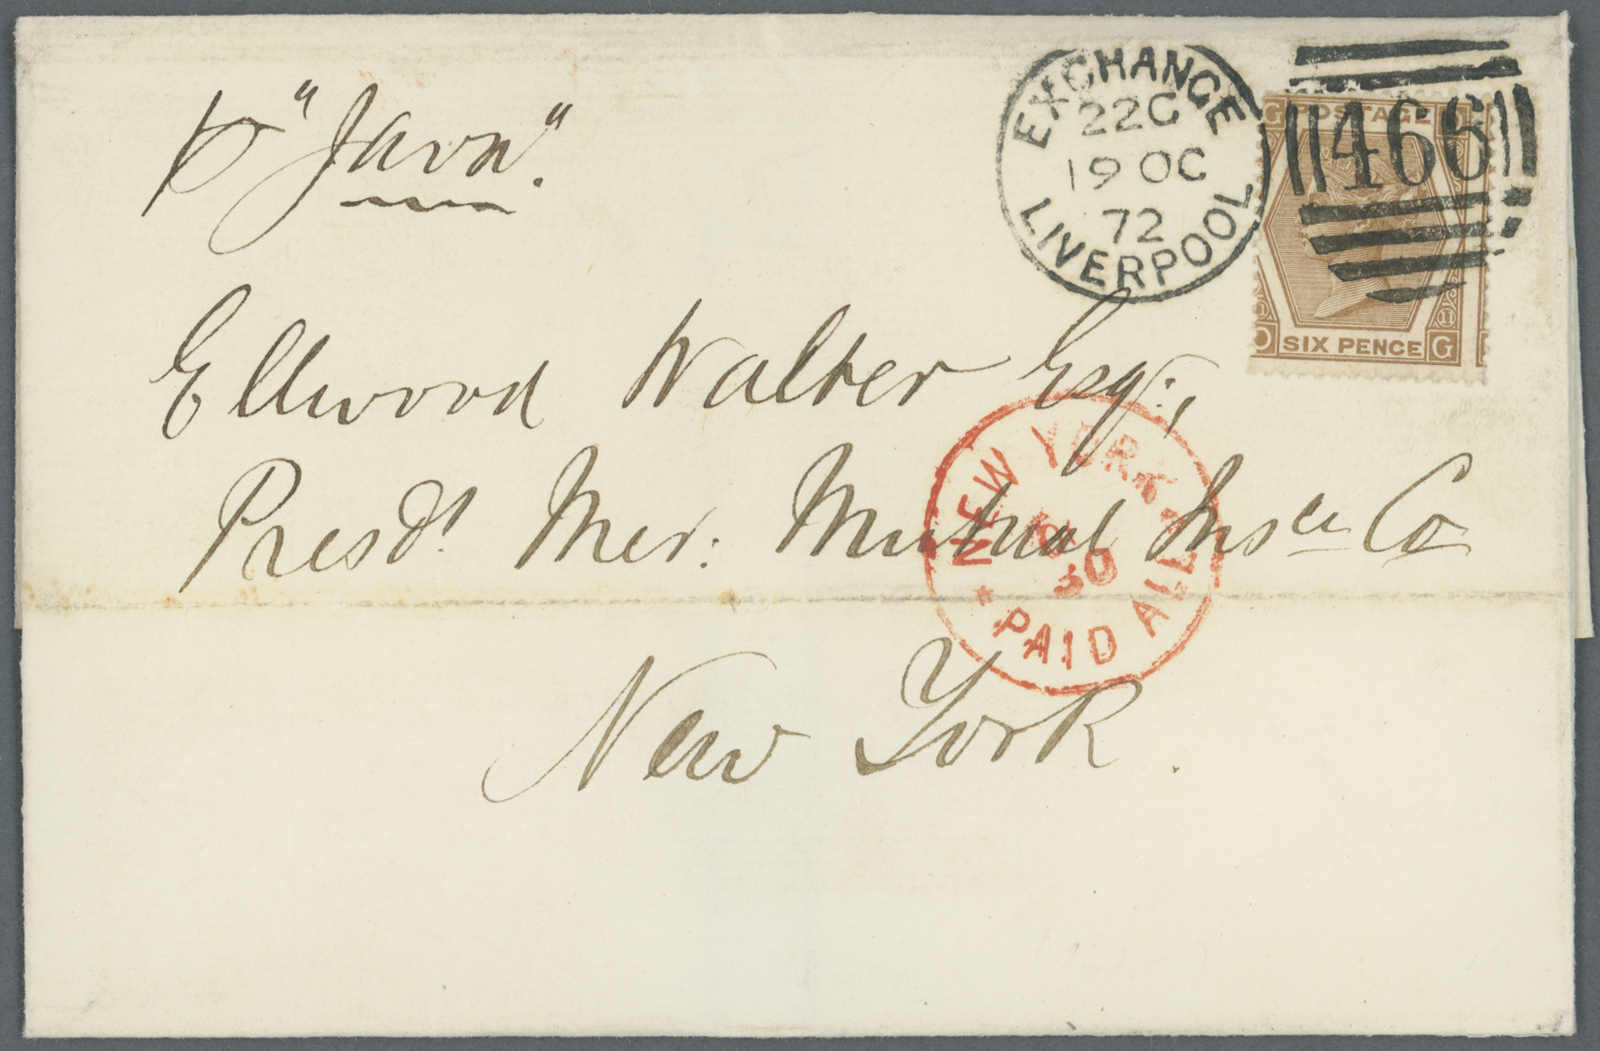 p "Java".
EXCHANGE
22C
19 OC
72
LIVERPOOL
466
G POSTAGE O
11 11
O SIX PENCE G
Ellwood Walter Esqr,
Presdt. Mer: Mutual Insce Co
New York.
NEW YORK
30
PAID ALL